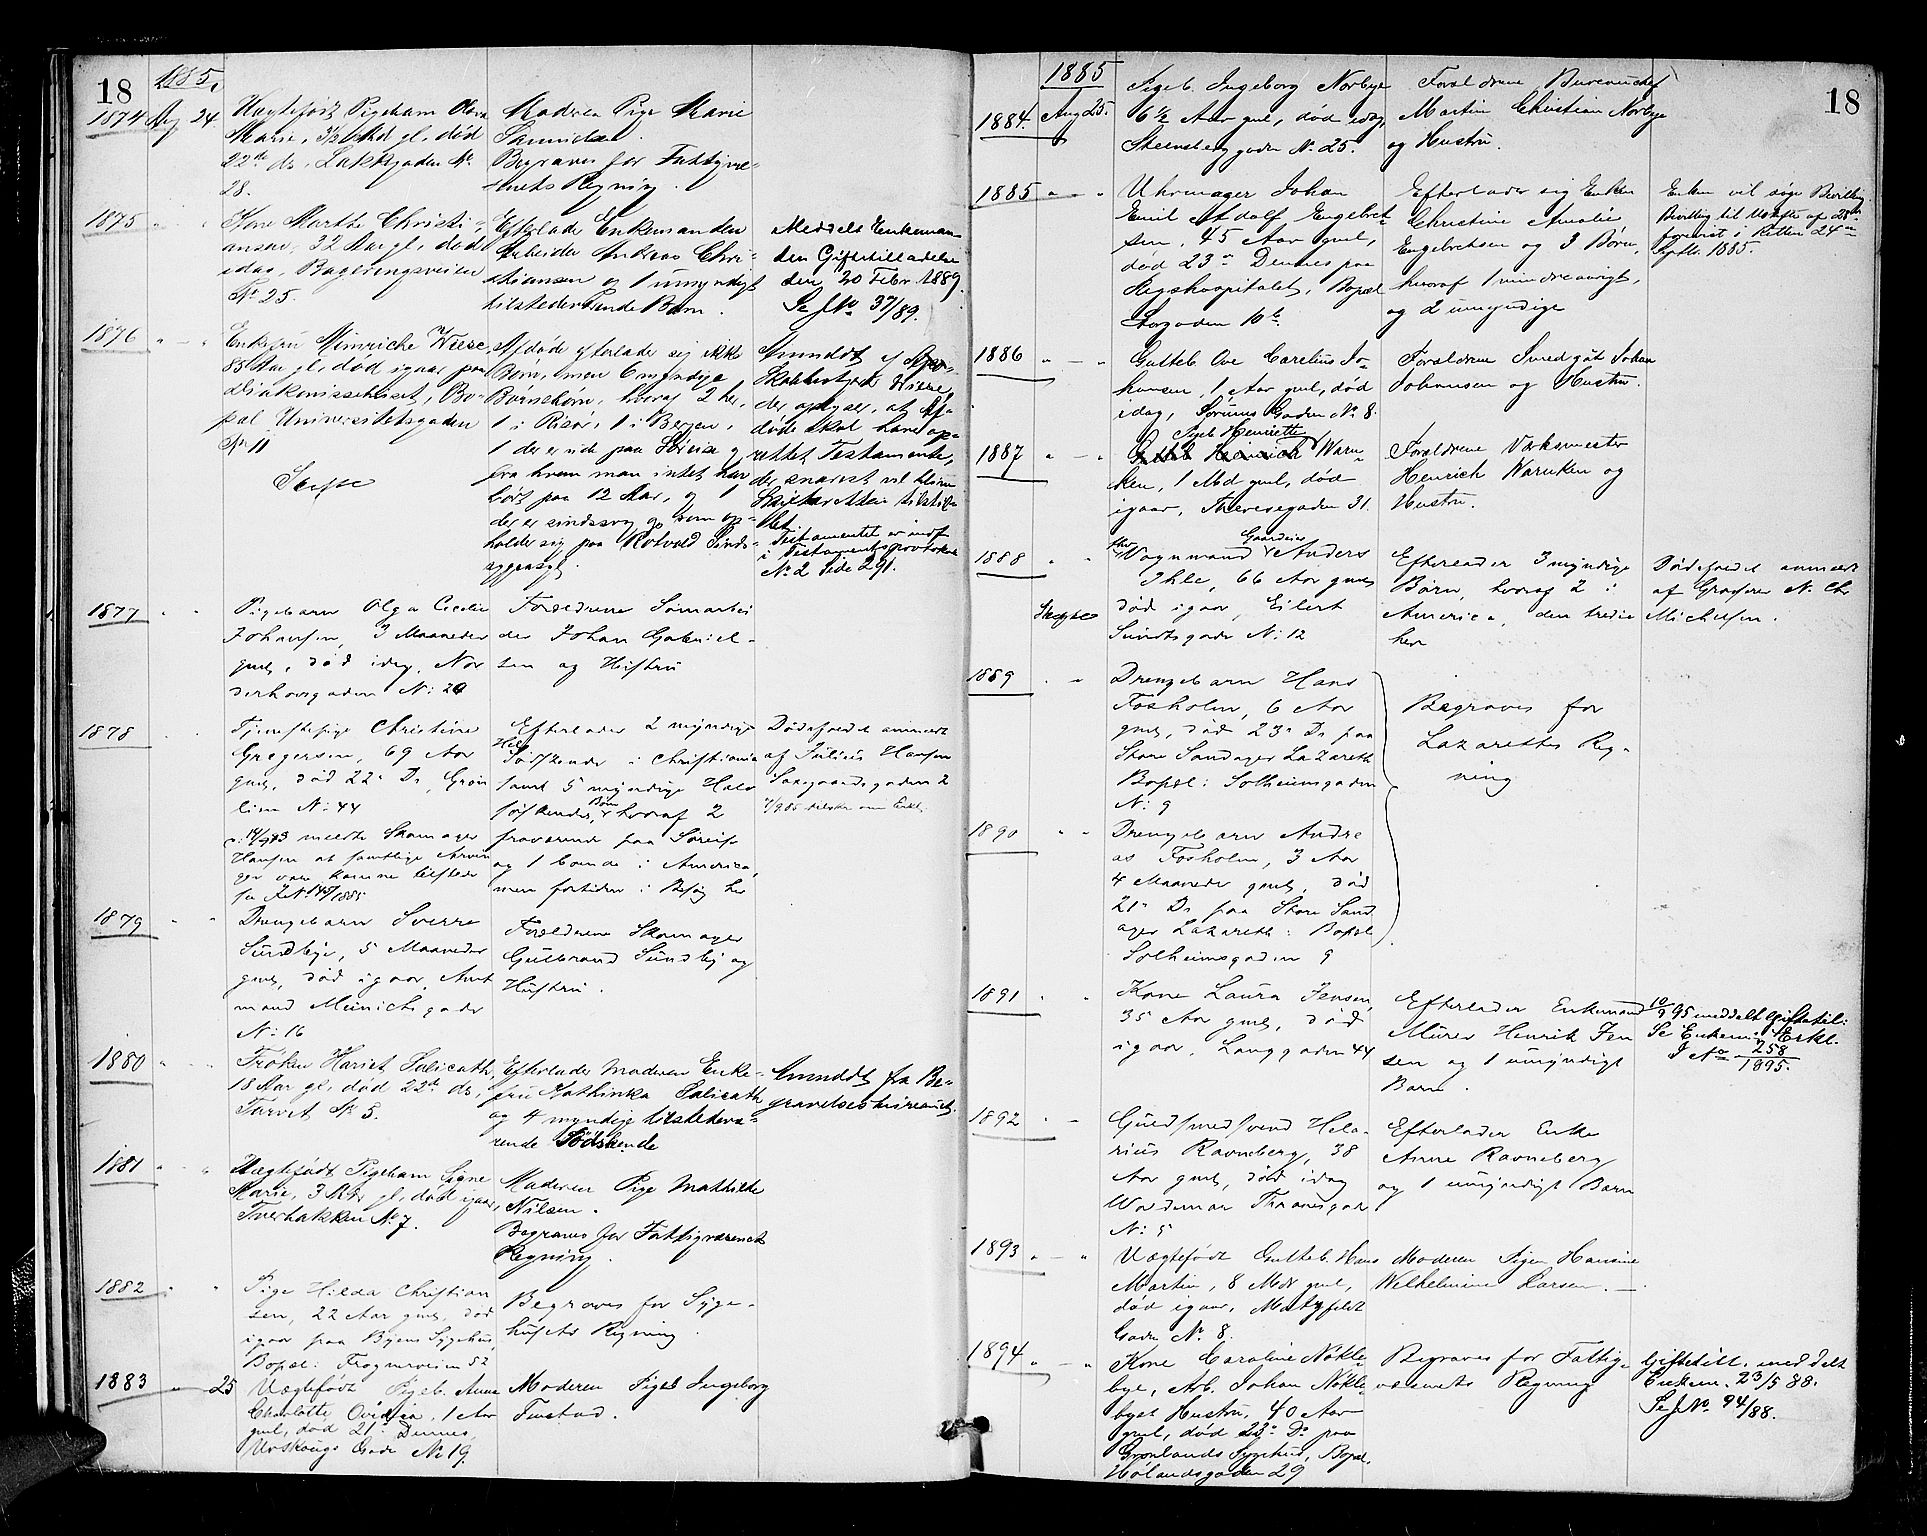 18
1885.
1874 Aug 24.
Uægtefødt Pigebarn Olava
Marie, 3½ Md gl, død
22de ds, Lakkegaden No
28.
Moderen Pige Marie
Begraves for Fattigvæ-
senets Regning.
1875 " "
Kone Marthe Christi-
ansen, 32 Aar gl, død
idag, Bageringsveien
No 25.
Efterlader Enkemanden
Arbeider Andreas Chri-
stiansen og 1 umyndigt
tilstedeværende Barn.
Meddelt Enkeman-
den Giftetilladelse
den 20 Febr. 1889.
Se J No 37/89.
1876 " — "
Enkefru Hinriche Wiese,
85 Aar gl, død igaar paa
Diakonissehuset, Bo-
pæl Universitetsgaden
No 11
Skifte
Afdøde efterlader sig ikke
Børn, men 6 myndige
Børnebørn, hvoraf 2 her,
1 i Risør, 1 i Bergen,
1 der er ude paa Søreise og
fra hvem man intet har
hørt paa 12 Aar, og 1
der er sindssyg og som op-
holder sig paa Rotvold Sinds-
sygeasyl.
Anmeldt af
der oplyser, at Af-
døde skal have op-
rettet Testamente,
der snarest vil blive
Skifteretten tilstil-
let.
Testamentet er indf
i Testamentsprotokol
No 2 Side 291.
1877 " "
Pigebarn Olga Cecilie
Johansen, 3 Maaneder
gml, død idag, Nor
derhovsgaden No: 20
Forældrene Tømarbei
der Johan Gabriel-
sen og Hustru
1878
Tjenestepige Christine
Gregersen, 69 Aar
gml, død 22de Ds, Grøn
lien No: 44
meldte Skomager
Hansen at samtlige Arvin
ger
se J No 145/1885
Efterlader 2 myndige
Hel
Sødskende i Christiania
samt 5 myndige Halv
sødskendes Børn hvoraf 2
fraværende paa Søreise
og 1 boende i America,
men fortiden i Besøg her
Dødsfaldet anmeldt
af Julius Hansen
Saxegaardsgaden 2
1879 " "
Drengebarn Sverre
Sundbye, 5 Maaneder
gml, død igaar, Amt
mand Meinichsgade
No: 16
Forældrene Skomager
Gulbrand Sundby og
Hustru.
1880 " "
Frøken Hariet Salicath,
18 Aar gl, død 22de ds,
Torvet No 5.
Efterlader Moderen Enke-
fru Kathinka Salicath
og 4 myndige tilstedevæ-
rende Sødskende
Anmeldt fra Be-
gravelsesbureauet.
1881 " "
Uægtefødt Pigebarn Signe
Marie, 3 Mdr gl, død igaar,
Tverbakken No 7.
Moderen Pige Mathilde
Nilsen.
Begraves for Fattigvæsenets
Regning.
1882 " "
Pige Hilda Christian
sen, 22 Aar gml, død
igaar paa Byens Sygehus,
Bopæl: Frognerveien 52
Begraves for Syge-
husets Regning.
1883 " 25
Uægtefødt Pigeb. Anna
Charlotte Ovidia, 1 Aar
gml, død 21de Dennes,
Urskougs Gade No 19.
Moderen Pigeb Ingeborg
Finstad.
18
1885
1884. Aug 25.
Pigeb. Ingeborg Norbye
6½ Aar gml, død idag,
Steensberggaden No. 25.
Forældrene Bureauchef
Martin Christian Norbye
og Hustru.
1885 " — "
Uhrmager Johan
Emil Adolf Engebret
sen, 45 Aar gml,
død 23de Dennes paa
Rigshospitalet, Bopæl
Torgaden 10 b.
Efterlader sig Enken
Christine Amalie
Engebretsen og 3 Børn,
hvoraf 1 mindreaarigt,
og 2 umyndige
Enken vil søge Bevilling
Bevilling til Uskifte af 25de
forevist i Retten 24de
Septbr. 1885.
1886 " — "
Gutteb Ove Carelius Jo-
hansen, 1 Aar gml, død
idag, Sørums Gaden No 8.
Forældrene Smedgüt Johan
Johansen og Hustru.
1887 " — "
Pigeb Henriette
Gutteb Heinrich Warn-
ken, 1 Md gml, død
igaar, Theresegaden 31.
Forældrene Værksmester
Henrich Warnken og
Hustru.
1888 " "
Skiftes
fhv Gaardeier
Vognmand Anders
Ihle, 66 Aar gml
død igaar, Eilert
Sundtsgade No: 12
Efterlader 3 myndige
Børn, hvoraf 2 i
America, den tredie
her
Dødsfaldet anmeldt
af Graver N. Chr
Michelsen.
1889 " "
Drengebarn Hans
Fosholm, 6 Aar
gml, død 23de Ds paa
Store Sandager Lazareth
Bopæl: Solheimsgaden
No: 9
Begraves for
Lazarettes Reg-
ning
1890 " "
Drengebarn Andre
as Fosholm, 3 Aar
4 Maaneder gml, død
21de Ds paa Store Sand
ager Lazareth: Bopæl
Solheimsgaden 9
1891 " "
Kone Laura Jensen,
35 Aar gml, død
igaar, Langgaden 44
Efterlader Enkemand
Murer Henrik Jen
sen og 1 umyndigt
Barn.
10/9 95 meddelt Giftetil:
Se Enkem. Erkl.
J No 258/1895.
1892 " —
Guldsmedsvend Hela-
rius Ravneberg, 38
Aar gml, død idag
Waldemar Thranesgade
No: 5
Efterlader Enke
Anne Ravneberg
og 1 umyndigt Barn
1893 " — "
Uægtefødt Gutteb. Hans
Martin, 8 Mdr gml,
død igaar, Motzfeldt
Gade No 8.
Moderen Pigen Hansine
Wilhelmine Larsen. —
1894 " — "
Kone Caroline Nøkle-
bye, Arb. Johan Nøkle-
byes Hustru, 40 Aar
gml, død 23de Ds paa
Grønlands Sygehus, Bopæl,
Hølandsgaden 29
Begraves for Fattig-
væsenets Regning
Giftetill. meddelt
Enkem. 23/5 88.
Se J No 94/88.